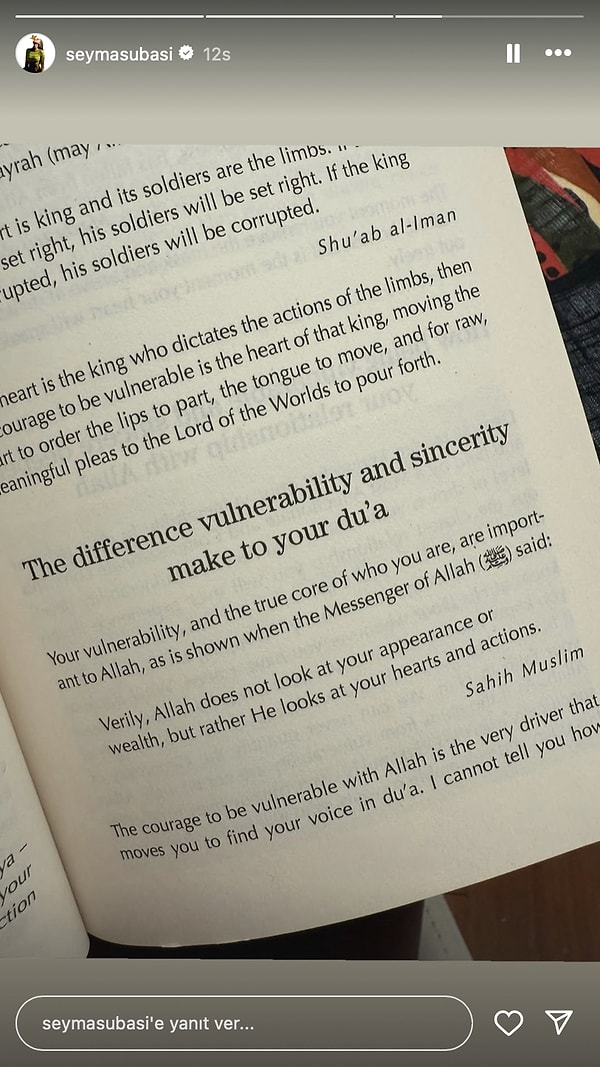 seymasubasi 12s
ayrah (may
rt is king and its soldiers are the limbs.
set right, his soldiers will be set right. If the king
rupted, his soldiers will be corrupted.
Shu'ab al-Iman
heart is the king who dictates the actions of the limbs, then
courage to be vulnerable is the heart of that king, moving the
rt to order the lips to part, the tongue to move, and for raw,
eaningful pleas to the Lord of the Worlds to pour forth.
The difference vulnerability and sincerity
make to your du'a
Your vulnerability, and the true core of who you are, are import-
ant to Allah, as is shown when the Messenger of Allah (ﷺ) said:
Verily, Allah does not look at your appearance or
wealth, but rather He looks at your hearts and actions.
Sahih Muslim
The courage to be vulnerable with Allah is the very driver that
moves you to find your voice in du'a. I cannot tell you how
ya –
your
ction
seymasubasi'e yanıt ver...